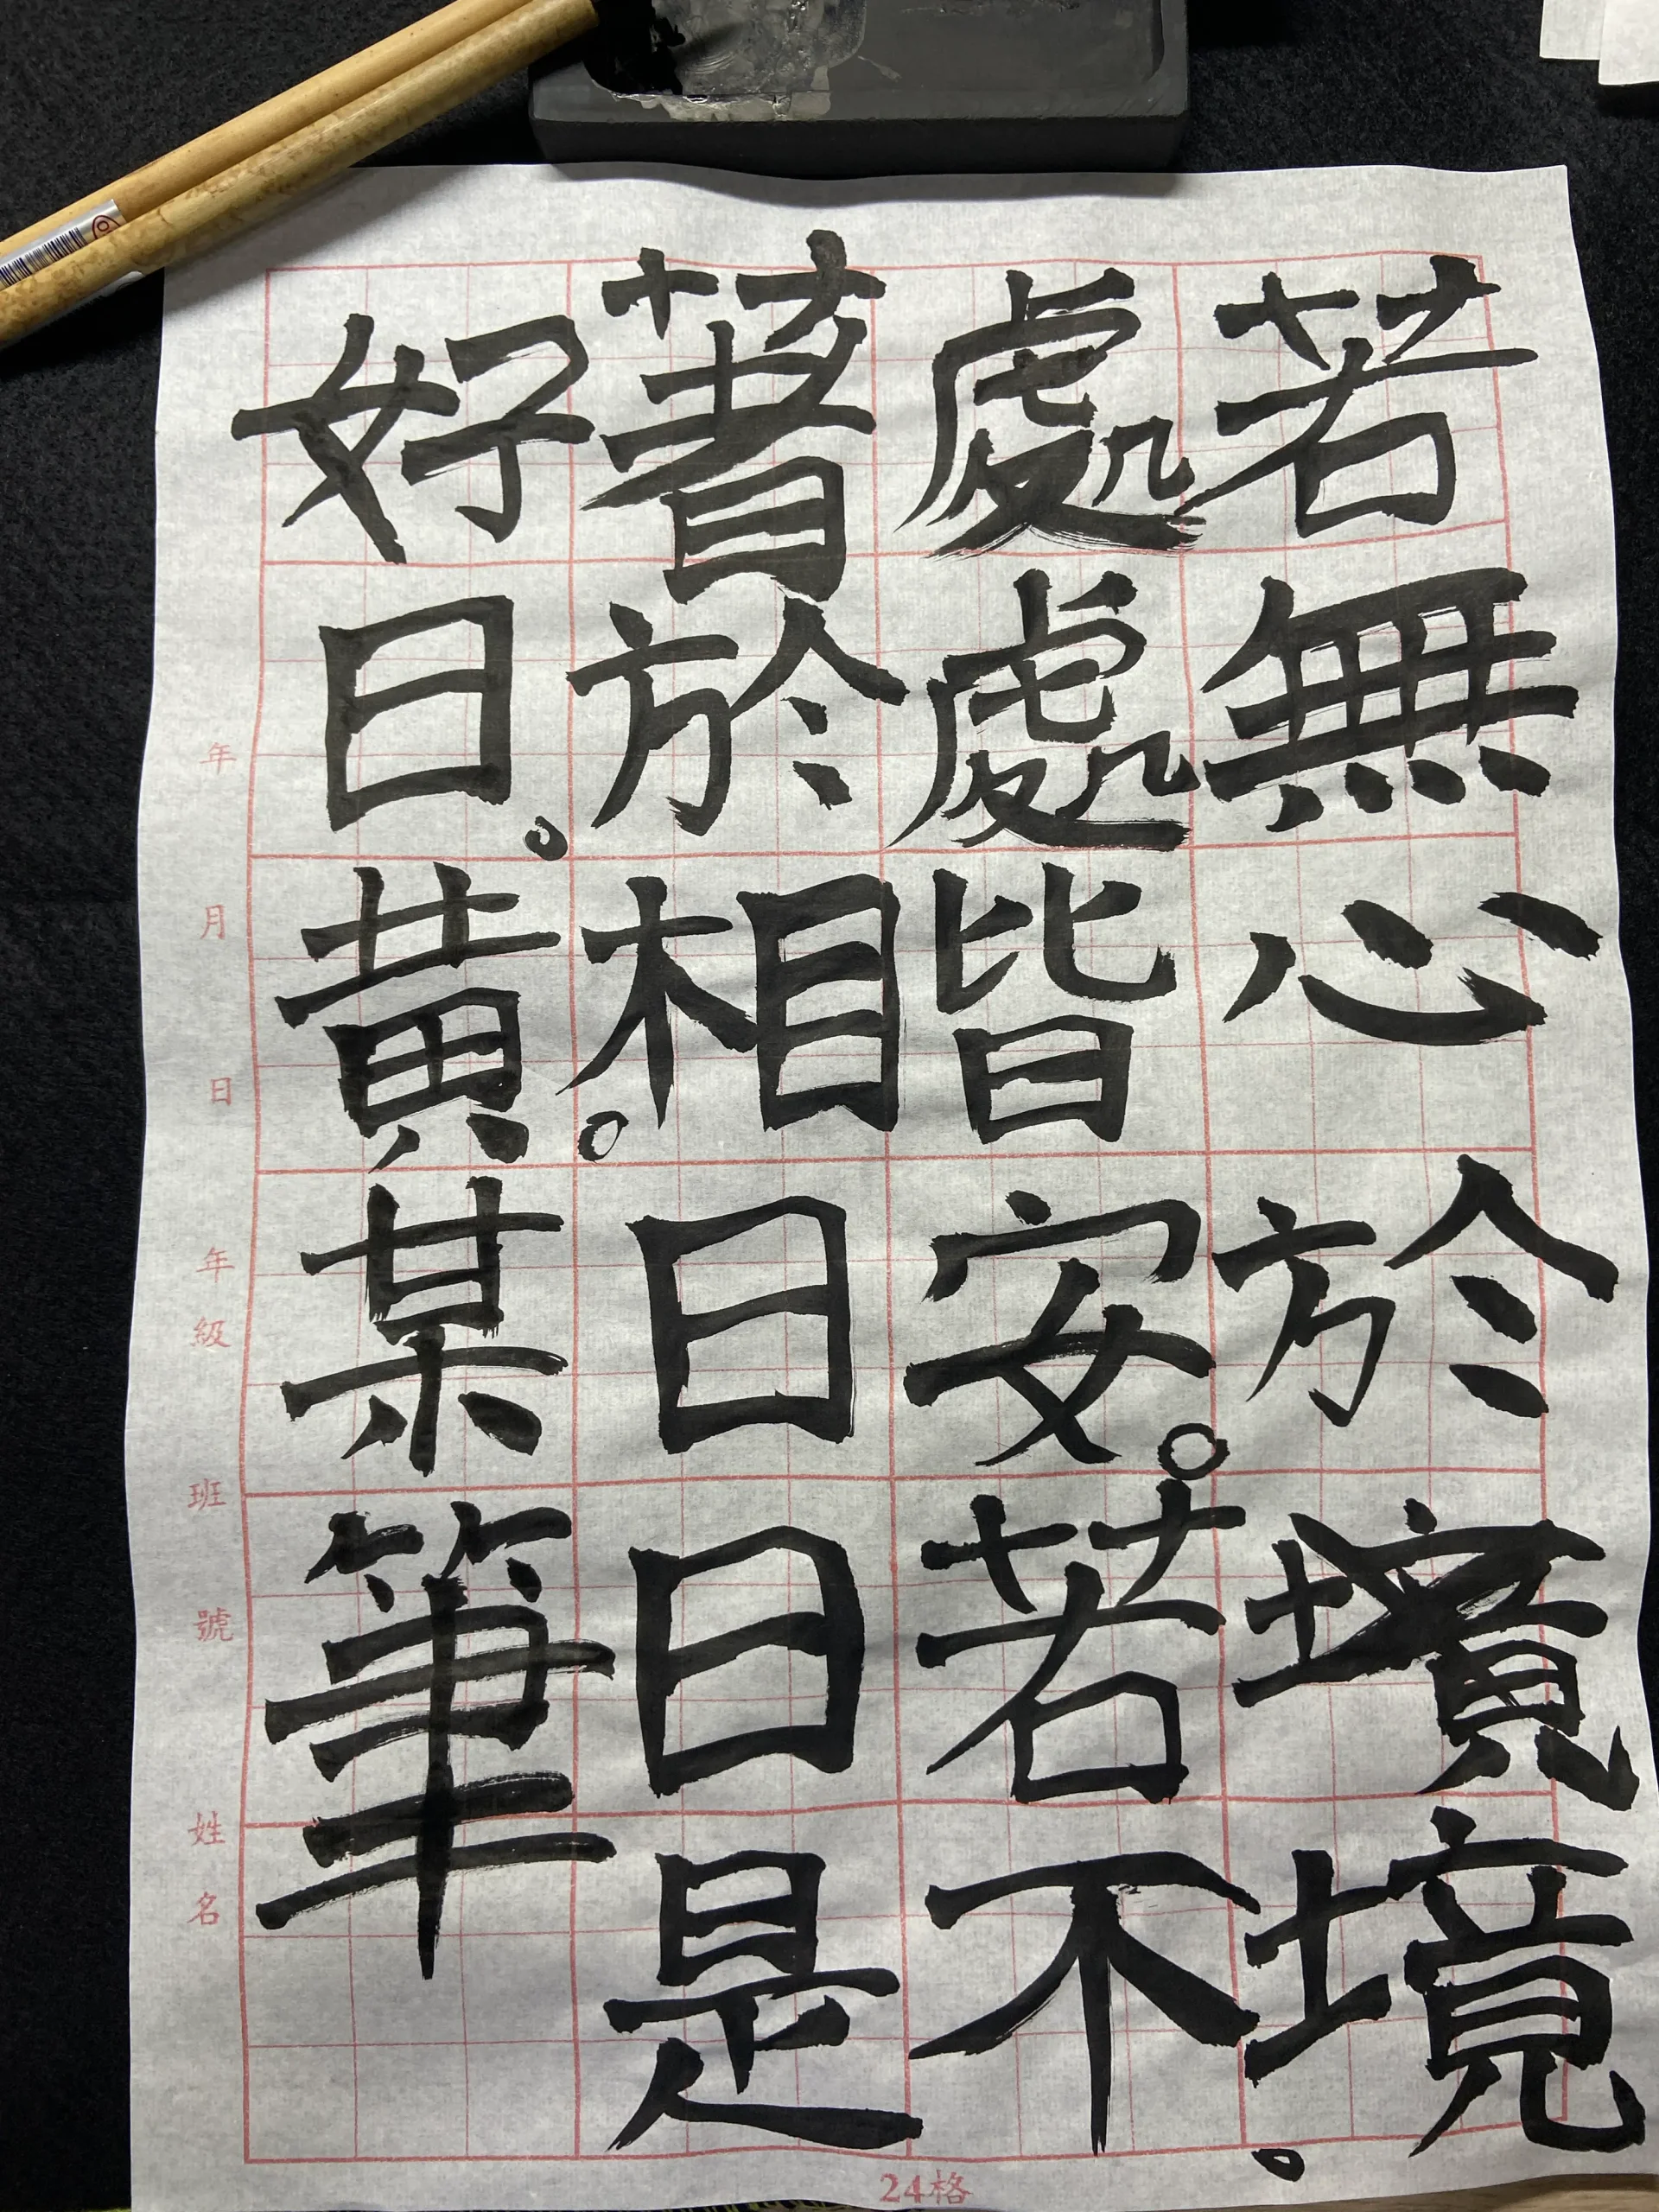 若無心於境境。
處處皆安。若不
著於相。日日是
好日。黃某筆
年 月 日 年級 班 號 姓名
24格